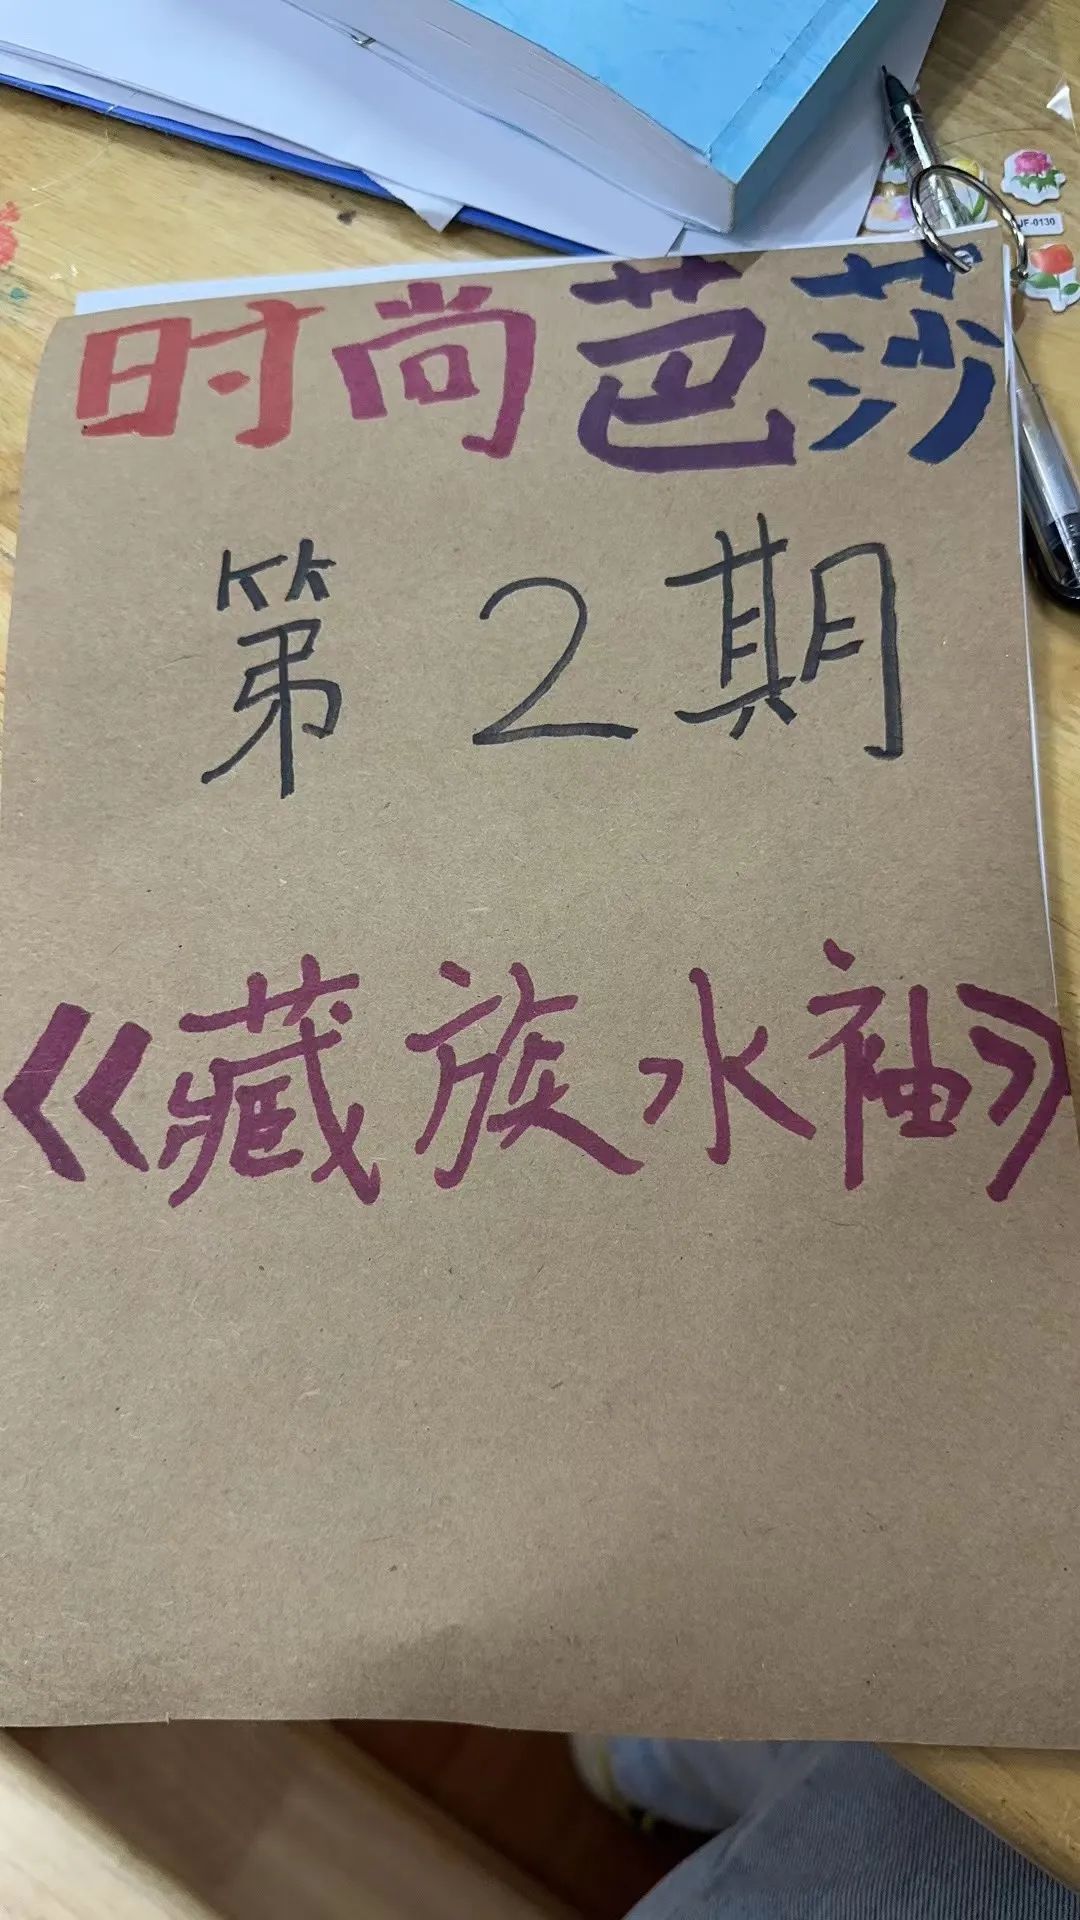 时尚芭莎
第2期
《藏族水袖》
JF-0130